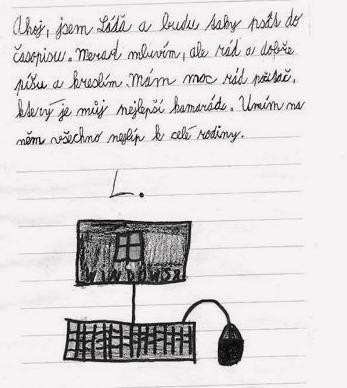 Ahoj, jsem Láďa a budu taky psát do
časopisu. Nerad mluvím, ale rád a dobře
píšu a kreslím. Mám moc rád počítač,
který je můj nejlepší kamarád. Umím na
něm všechno nejlíp z celé rodiny.
L.
WINDOWS